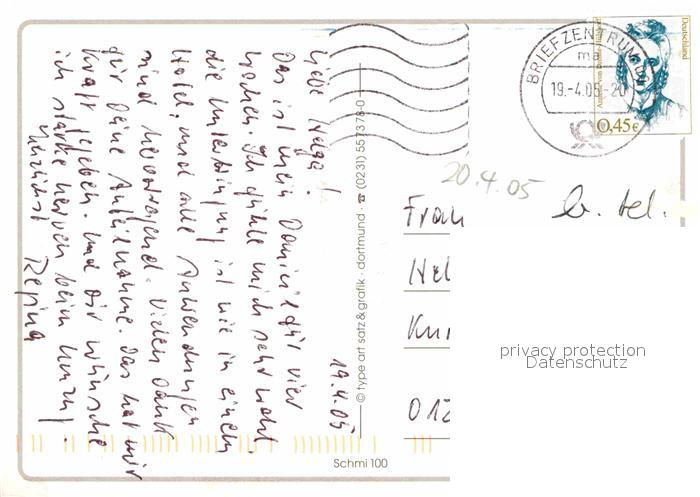 19.4.05
Liebe Helga!
Das ist mein Domizil für vier
Wochen. Ich fühle mich sehr wohl,
die Unterbringung ist wie in einem
Hotel, und alle Anwendungen
sind hervorragend. Vielen Dank
für Deine Anteilnahme. Das hat mir
Kraft gegeben. Und dir wünsche
ich starke Nerven beim Umzug.
Herzlichst Regina
© type art satz & grafik · dortmund · ☎ (0231) 557378-0
Schmi 100
BRIEFZENTRUM
ma
19.-4.05-20
Deutschland
0,45€
20.4.05
b. tel.
Frau
Hel
Kur
012
privacy protection
Datenschutz